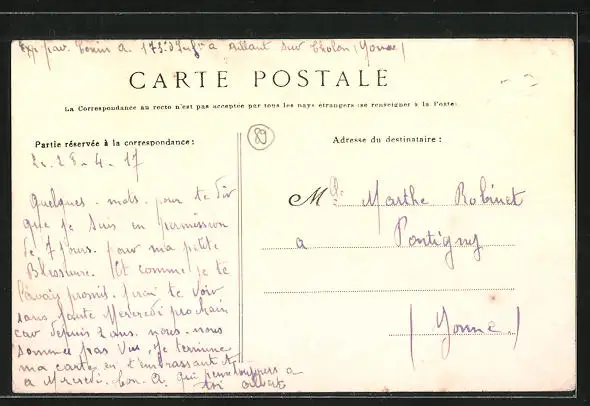 Exp par Tonin A. 173e d'Infie a Aillant sur Tholon (Yonne)
CARTE POSTALE
La Correspondance au recto n'est pas acceptée par tous les pays étrangers (se renseigner à la Poste)
Partie réservée à la correspondance :
28-4-17
Quelques mots pour te dir
que je suis en permission
de 7 jours. pour ma petite
Blessure. Et comme je te
l'avais promis. j'irai te voir
sans faute Mercredi prochain
car depuis 2 ans. nous nous
sommes pas vus, Je termine
ma carte en t'embrassant
a Mercredi. Ton. A. qui pense toujours a
toi
89
Adresse du destinataire :
Mlle Marthe Robinet
a Pontigny
(Yonne)